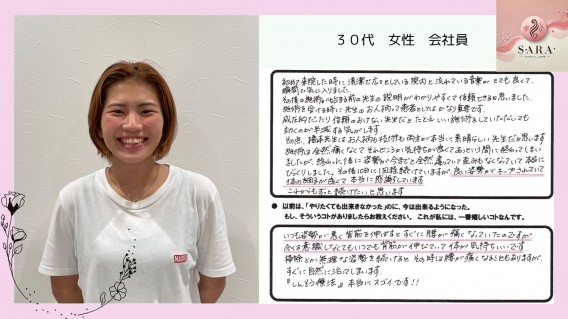 ３０代　女性　会社員
SARA
初めて来院した時に清潔で広々としている院内と流れている音楽がとても良くて、
瞬間で気に入りました。
その後の施術が始まる前の先生の説明がわかりやすくて信頼できると思いました。
施術を受ける時に先生のお人柄って患者としてはかなり重要です。
威圧的だったり信頼のおけない先生だと たとえいい施術をしていただいても
効くのが半減する気がします。
その点、橋本先生はお人柄も技術も両方が本当に素晴らしい先生だと思います。
施術は全然痛くなくて それどころか気持ちが良くてあっという間に終わってしまい
ましたが、終わった後に姿勢が今までと全然違っていて 歪みもなくなっていて本当に
びっくりしました。その後10日に1回程続けていますが、良い姿勢がキープされていて
体の調子が良くて本当に感謝しています
これからもずっと続けたいと思います
● 以前は、「やりたくても出来きなかった」のに、今は出来るようになった。
もし、そういうコトがありましたらお教えください。 これが私には、一番嬉しいコトなんです。
いつも姿勢が悪く背筋を伸ばすとすぐに腰が痛くなっていたのですが
今は意識しなくてもいつでも背筋が伸びていて体が気持ちいいです。
掃除とか無理な姿勢を続けると その時は腰が痛くなることもありますが、
すぐに自然に治ってしまいます。
『しんそう療法』本当にスゴイです!!